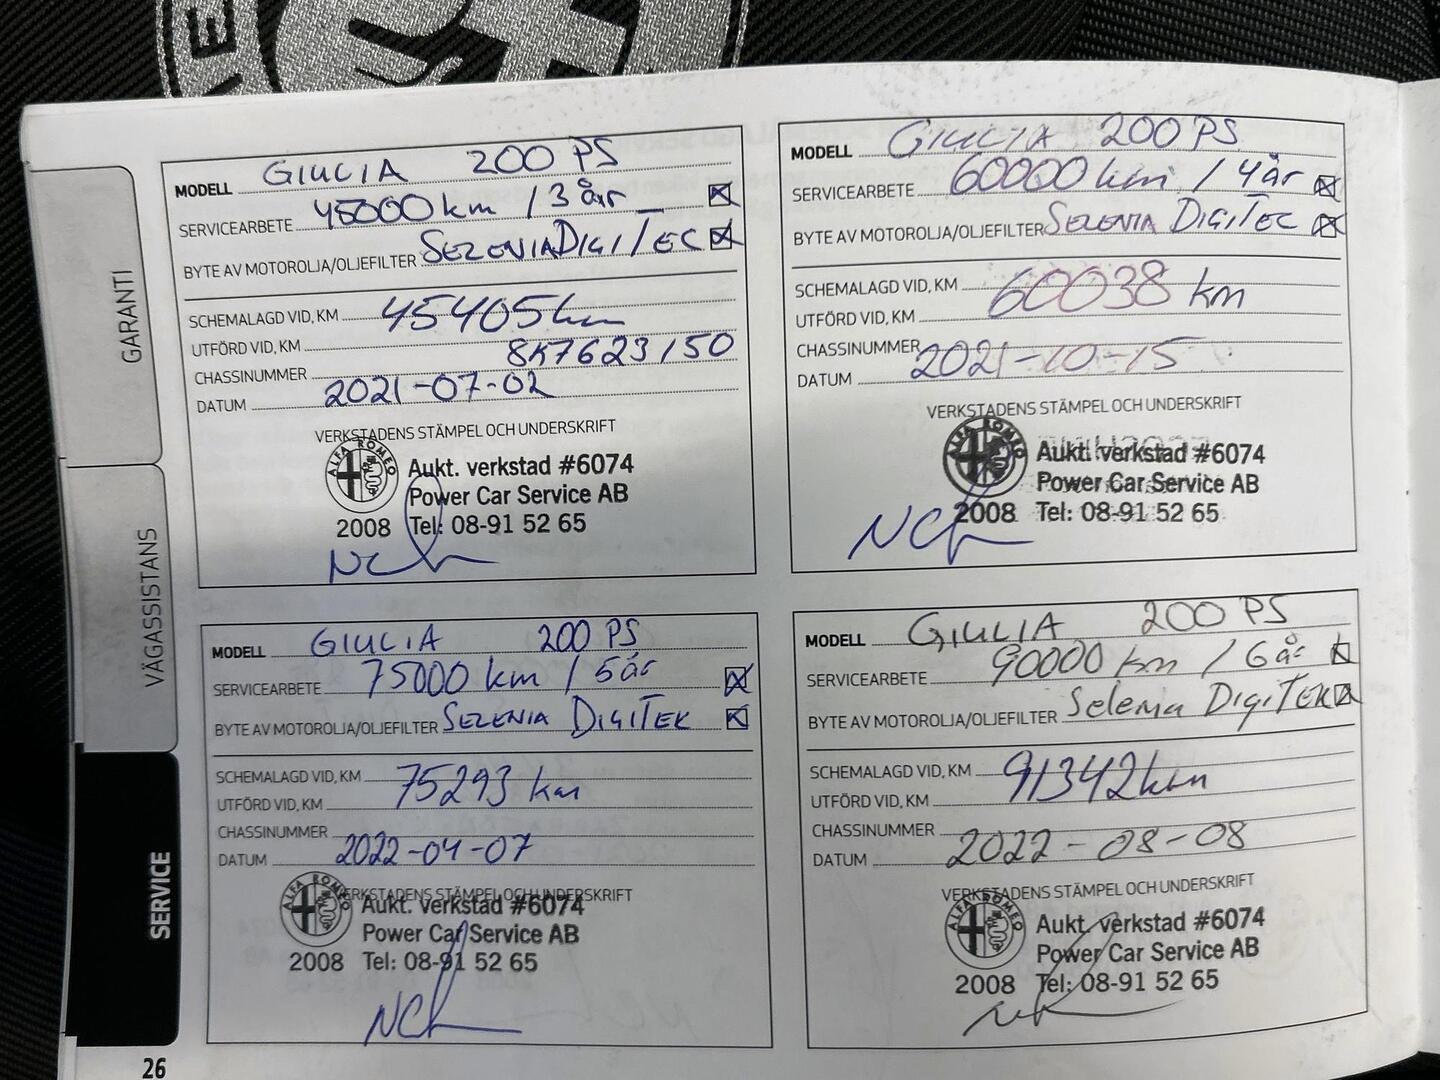 GARANTI
VÄGASSISTANS
SERVICE
26
MODELL GIULIA 200 PS
SERVICEARBETE 45000 km / 3 år
BYTE AV MOTOROLJA/OLJEFILTER SELENIA DIGITEC
SCHEMALAGD VID, KM 45405 km
UTFÖRD VID, KM
CHASSINUMMER 8K7623150
DATUM 2021-07-02
VERKSTADENS STÄMPEL OCH UNDERSKRIFT
ALFA ROMEO
Aukt. verkstad #6074
Power Car Service AB
2008 Tel: 08-91 52 65
MODELL GIULIA 200 PS
SERVICEARBETE 60000 km / 4 år
BYTE AV MOTOROLJA/OLJEFILTER SELENIA DIGITEC
SCHEMALAGD VID, KM 60038 km
UTFÖRD VID, KM
CHASSINUMMER
DATUM 2021-10-15
VERKSTADENS STÄMPEL OCH UNDERSKRIFT
ALFA ROMEO
Aukt. verkstad #6074
Power Car Service AB
2008 Tel: 08-91 52 65
MODELL GIULIA 200 PS
SERVICEARBETE 75000 km / 5 år
BYTE AV MOTOROLJA/OLJEFILTER SELENIA DIGITEK
SCHEMALAGD VID, KM 75293 km
UTFÖRD VID, KM
CHASSINUMMER
DATUM 2022-04-07
VERKSTADENS STÄMPEL OCH UNDERSKRIFT
ALFA ROMEO
Aukt. verkstad #6074
Power Car Service AB
2008 Tel: 08-91 52 65
MODELL GIULIA 200 PS
SERVICEARBETE 90000 km / 6 år
BYTE AV MOTOROLJA/OLJEFILTER Selenia DigiTEK
SCHEMALAGD VID, KM 91342 km
UTFÖRD VID, KM
CHASSINUMMER
DATUM 2022-08-08
VERKSTADENS STÄMPEL OCH UNDERSKRIFT
ALFA ROMEO
Aukt. verkstad #6074
Power Car Service AB
2008 Tel: 08-91 52 65